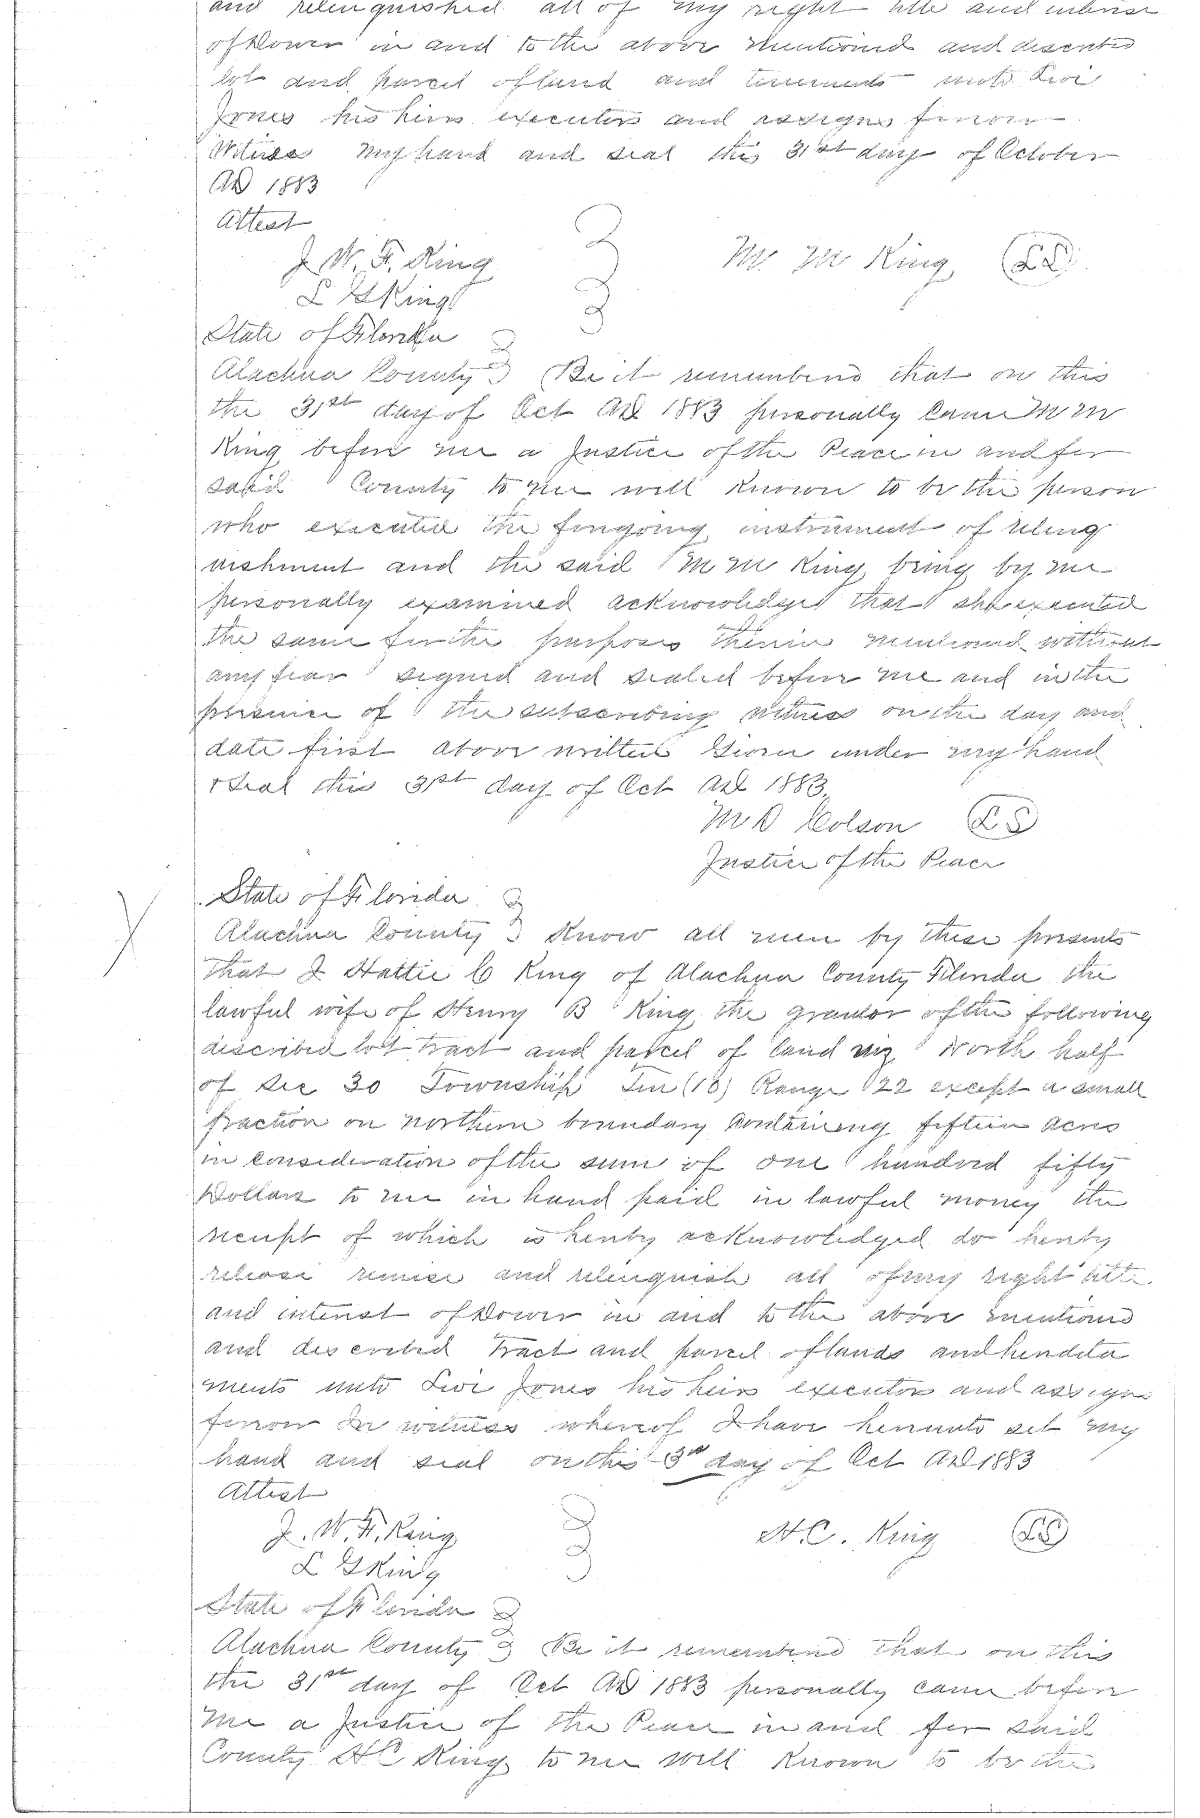 and relinquished all of my right title and interest
of Dower in and to the above mentioned and described
lot and parcel of land and tenements unto Levi
Jones his heirs executors and assigns forever
Witness my hand and seal this 31st day of October
AD 1883
Attest
J. W. F. King
L G King
M. M King LS
State of Florida
Alachua County Be it remembered that on this
the 31st day of Oct AD 1883 personally came M M
King before me a Justice of the Peace in and for
said County to me well known to be the person
who executed the foregoing instrument of relinq
uishment and the said M M King being by me
personally examined acknowledged that she executed
the same for the purposes therein mentioned without
any fear signed and sealed before me and in the
presence of the subscribing witness on the day and
date first above written Given under my hand
& Seal this 31st day of Oct AD 1883.
M D Colson LS
Justice of the Peace
State of Florida
Alachua County Know all men by these presents
that I Hattie C King of Alachua County Florida the
lawful wife of Henry B King the grantor of the following
described lot tract and parcel of land viz North half
of Sec 30 Township Ten (10) Range 22 except a small
fraction on northern boundary containing fifteen acres
in consideration of the sum of one hundred fifty
Dollars to me in hand paid in lawful money the
receipt of which is hereby acknowledged do hereby
release remise and relinquish all of my right title
and interest of Dower in and to the above mentioned
and described tract and parcel of lands and heredita
ments unto Levi Jones his heirs executors and assigns
forever In witness whereof I have hereunto set my
hand and seal on this 3rd day of Oct AD 1883
Attest
J. W. F. King
L G King
H. C. King LS
State of Florida
Alachua County Be it remembered that on this
the 31st day of Oct AD 1883 personally came before
me a Justice of the Peace in and for said
County H C King to me well known to be the